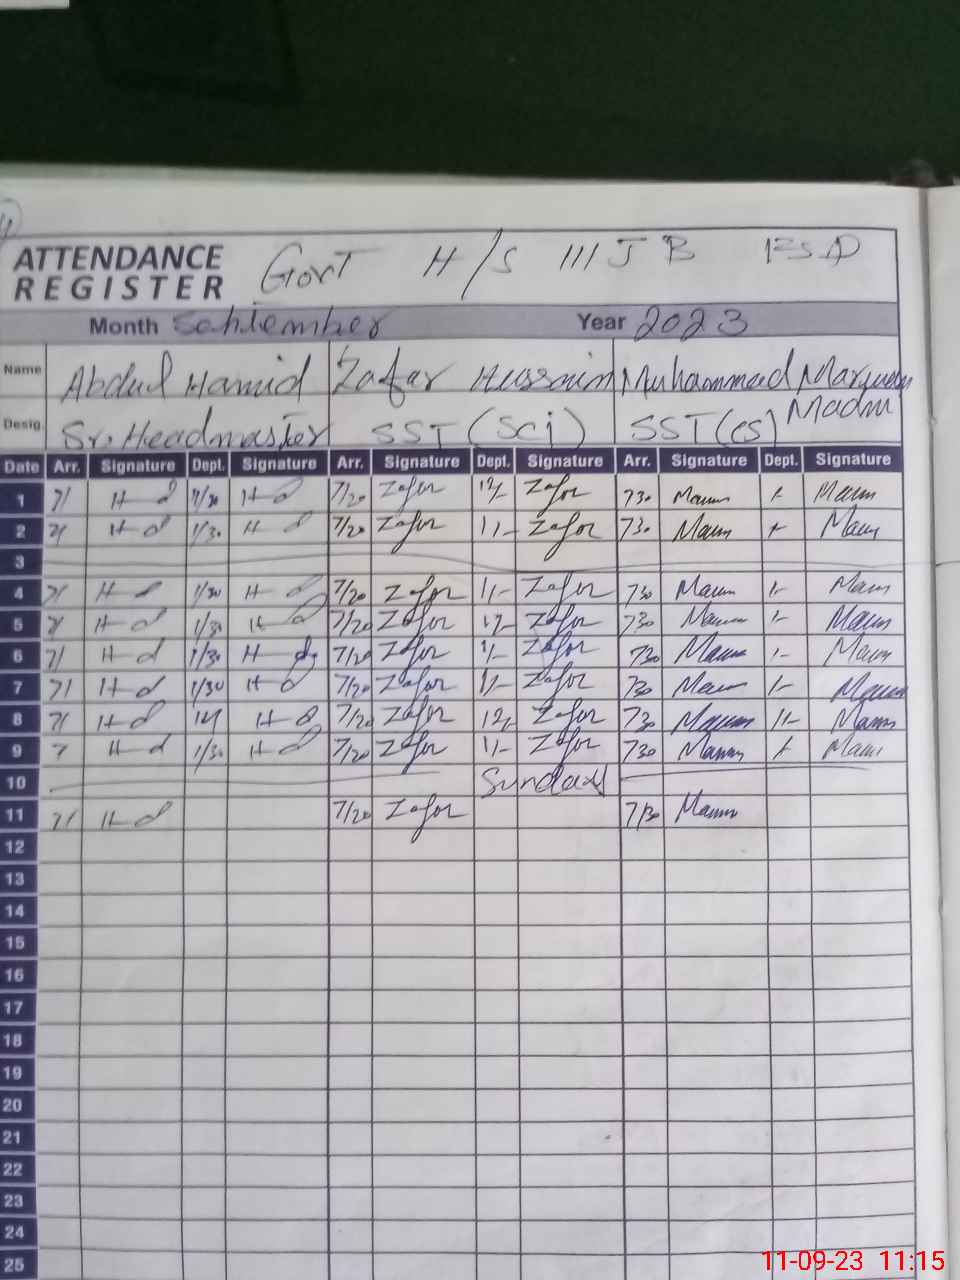 ATTENDANCE REGISTER Govt H/S 111 J B FSD
Month Sehtember Year 2023
Name Abdul Hamid Zafar Hussain Muhammad
Desig. Sr. Headmaster SST (Sci) SST (CS)
Date Arr. Signature Dept. Signature Arr. Signature Dept. Signature Arr. Signature Dept. Signature
1 7/ H d 1/30 H d 7/20 Zafor Zafor 730 Maum Maum
2 H d 1/30 H d 7/20 Zafor 1/- Zafor 730 Maum Maum
3
4 7/ H d 1/30 H d 7/20 Zafor 1/- Zafor 730 Maum 1- Maum
5 H d 1/30 H d 7/20 Zafor Zafor 730 Maum 1- Maum
6 7/ H d 1/30 H d 7/20 Zafor 1/- Zafor 730 Maum 1- Maum
7 7/ H d 1/30 H d 7/20 Zafor 1/- Zafor 730 Maum 1- Maum
8 7/ H d H d 7/20 Zafor Zafor 730 Maum Maum
9 7 H d 1/30 H d 7/20 Zafor 1/- Zafor 730 Maum Maum
10 Sunday
11 7/ H d 7/20 Zafor 7/30 Maum
12
13
14
15
16
17
18
19
20
21
22
23
24
25
11-09-23 11:15